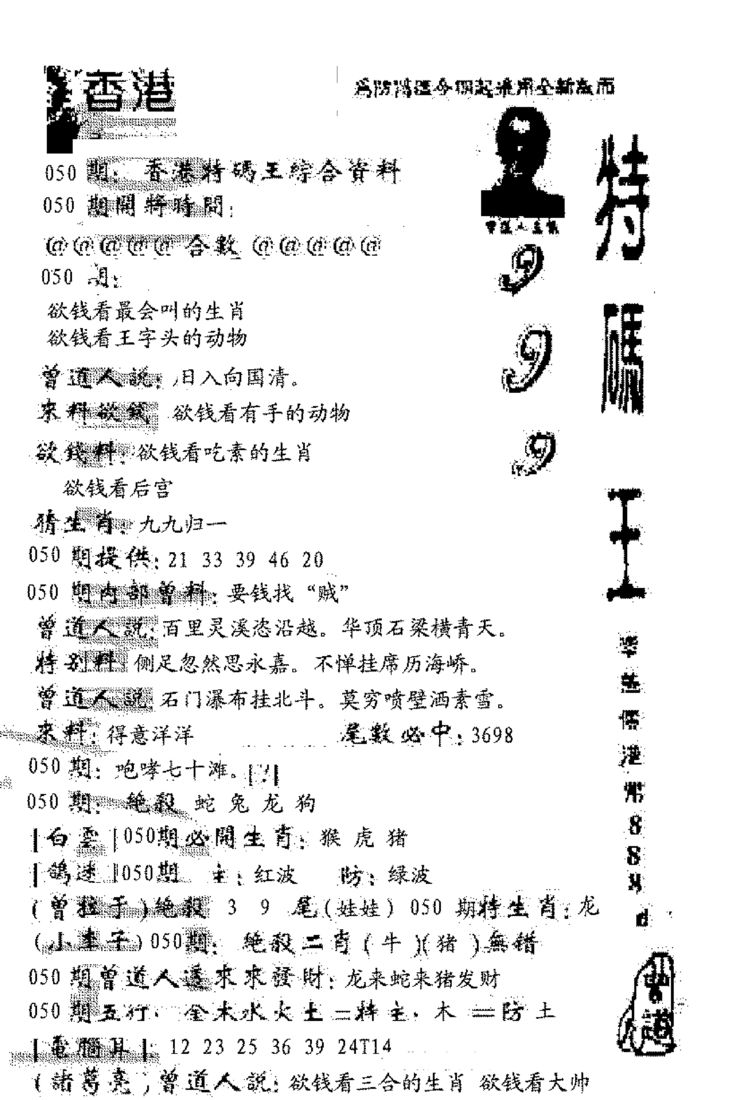 香港
為防鴿溫今期起采用全新版而
050 期: 香港特碼王綜合資料
050 期開將時間:
@@@@@ 合數 @@@@@
050 期:
欲钱看最会叫的生肖
欲钱看王字头的动物
曾道人說: 日入向国清。
來料欲錢 欲钱看有手的动物
欲錢料: 欲钱看吃素的生肖
欲钱看后宫
猜生肖: 九九归一
050 期提供: 21 33 39 46 20
050 期内部曾料: 要钱找“贼”
曾道人說: 百里灵溪恣沿越。华顶石梁横青天。
特别料: 侧足忽然思永嘉。不惮挂席历海峤。
曾道人說 石门瀑布挂北斗。莫穷喷壁洒素雪。
來料: 得意洋洋 尾數必中: 3698
050 期: 咆哮七十滩。[?]
050 期: 絶殺 蛇 兔 龙 狗
[白雲]050期必開生肖: 猴 虎 猪
[鴿迷]050期 主: 红波 防: 绿波
(曾拉于)絶殺 3 9 尾(娃娃) 050 期特生肖: 龙
(小李子)050期: 絶殺二肖(牛)(猪)無錯
050 期曾道人送來來發財: 龙来蛇来猪发财
050 期五行: 金木水火土=特主: 木 =防土
[電腦耳]: 12 23 25 36 39 24T14
(諸葛亮)曾道人說: 欲钱看三合的生肖 欲钱看大帅
曾道人主儀
999
特碼王
8
8
8
曾道